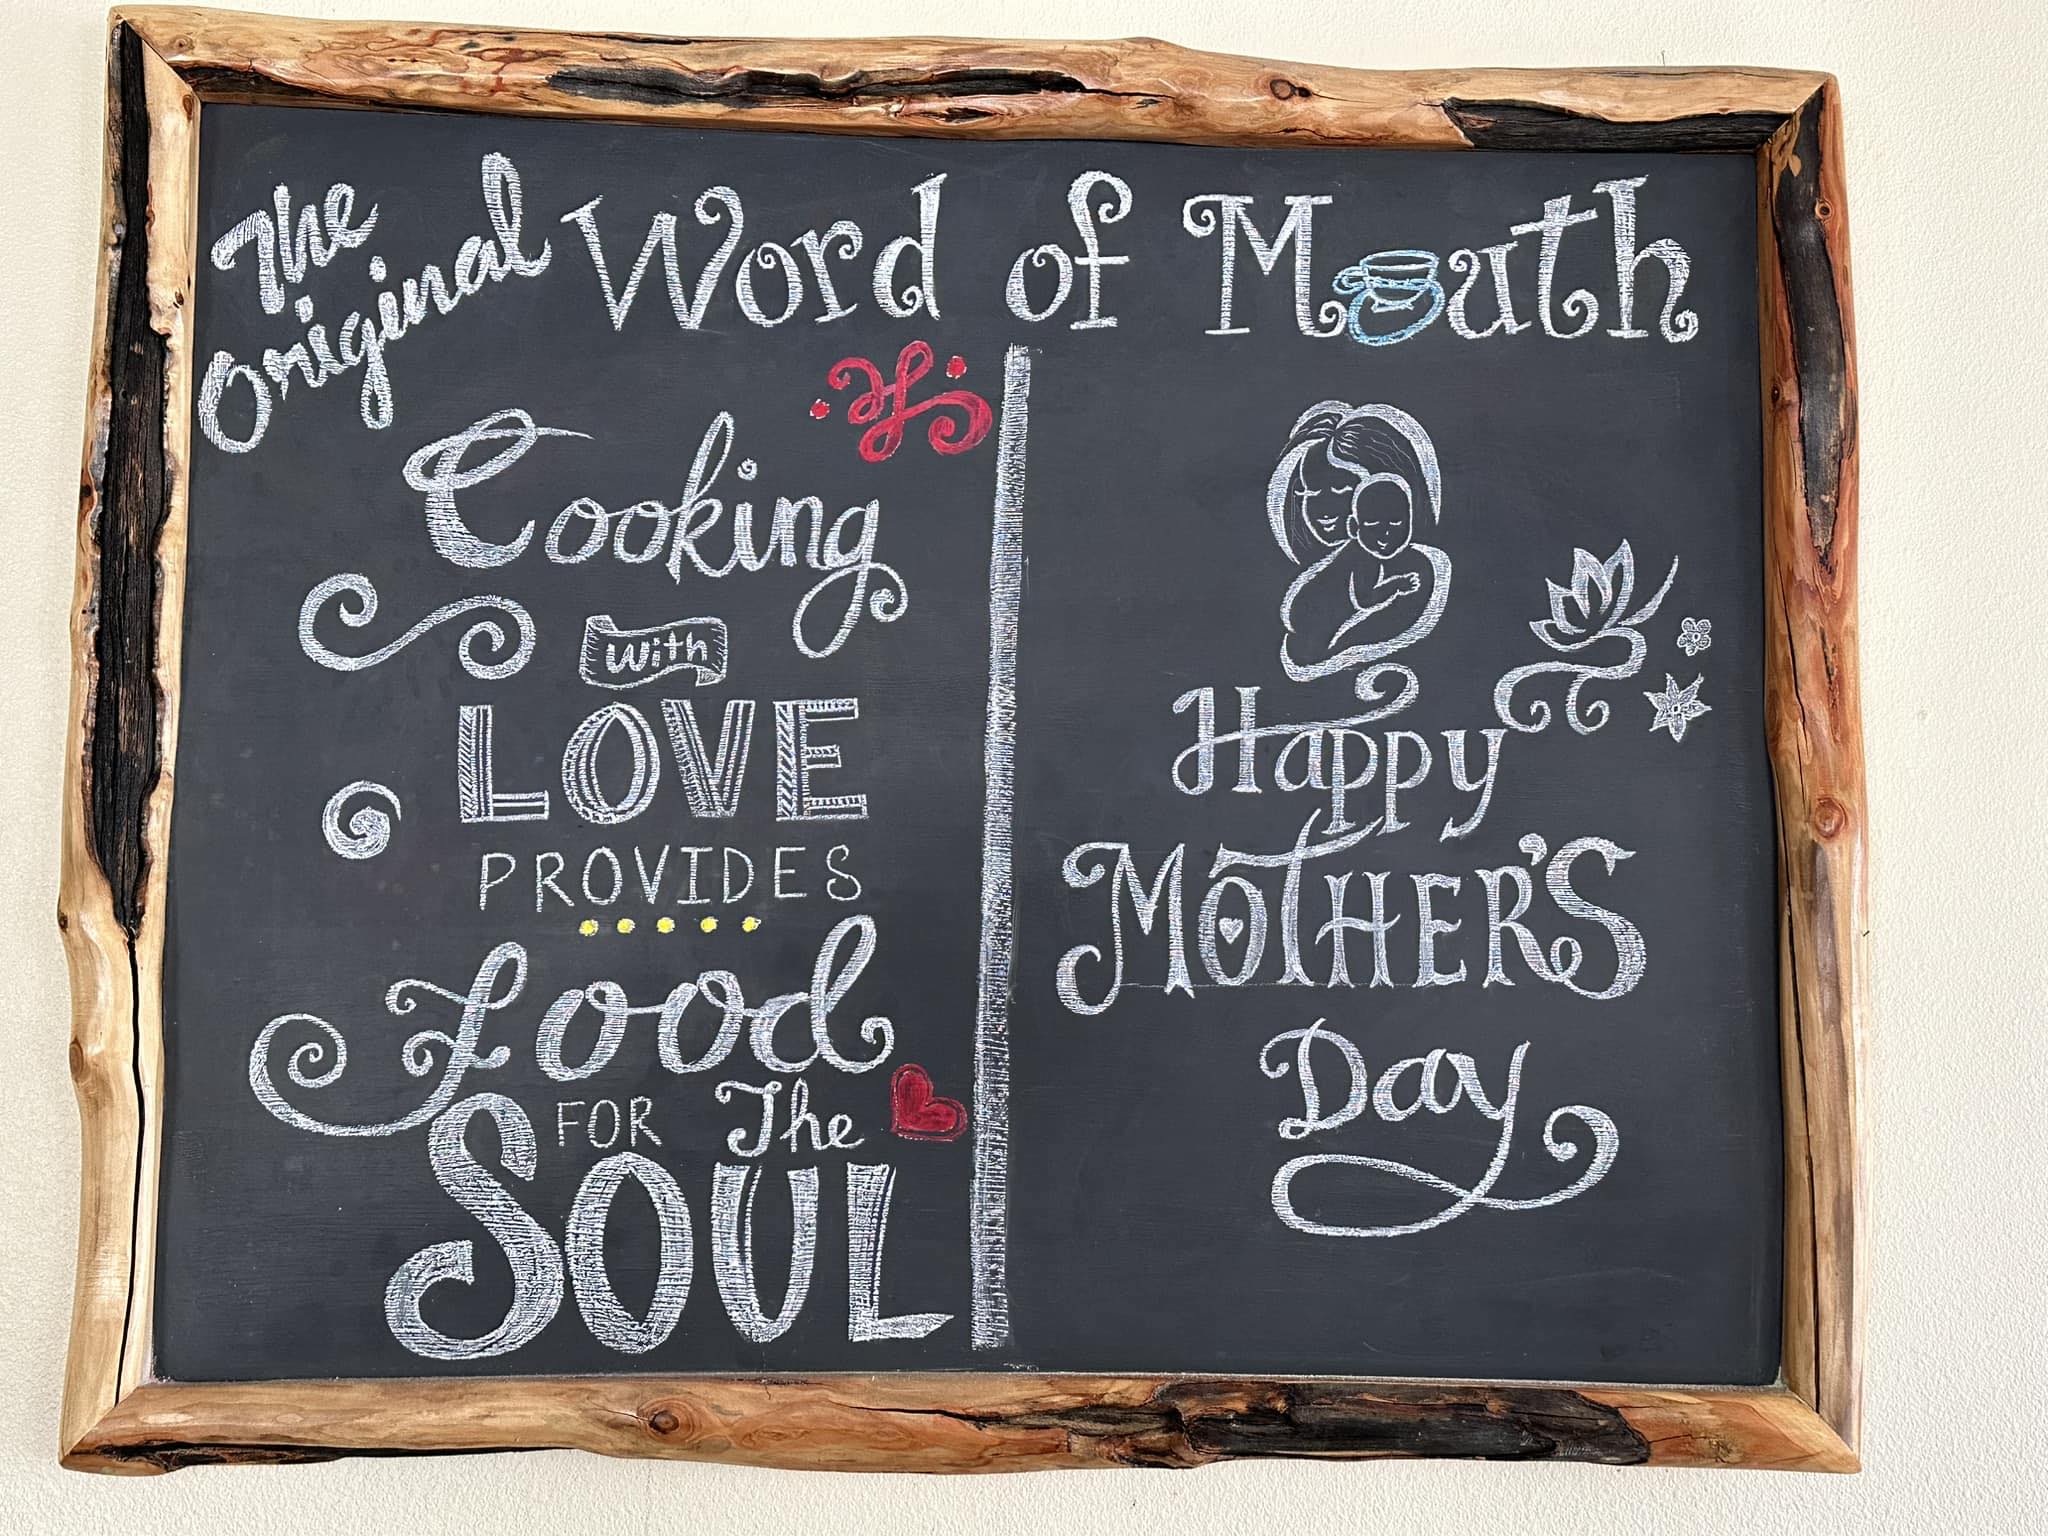 The Original Word of Mouth
Cooking
with
LOVE
PROVIDES
Food
FOR The
SOUL
Happy
MOTHER'S
Day